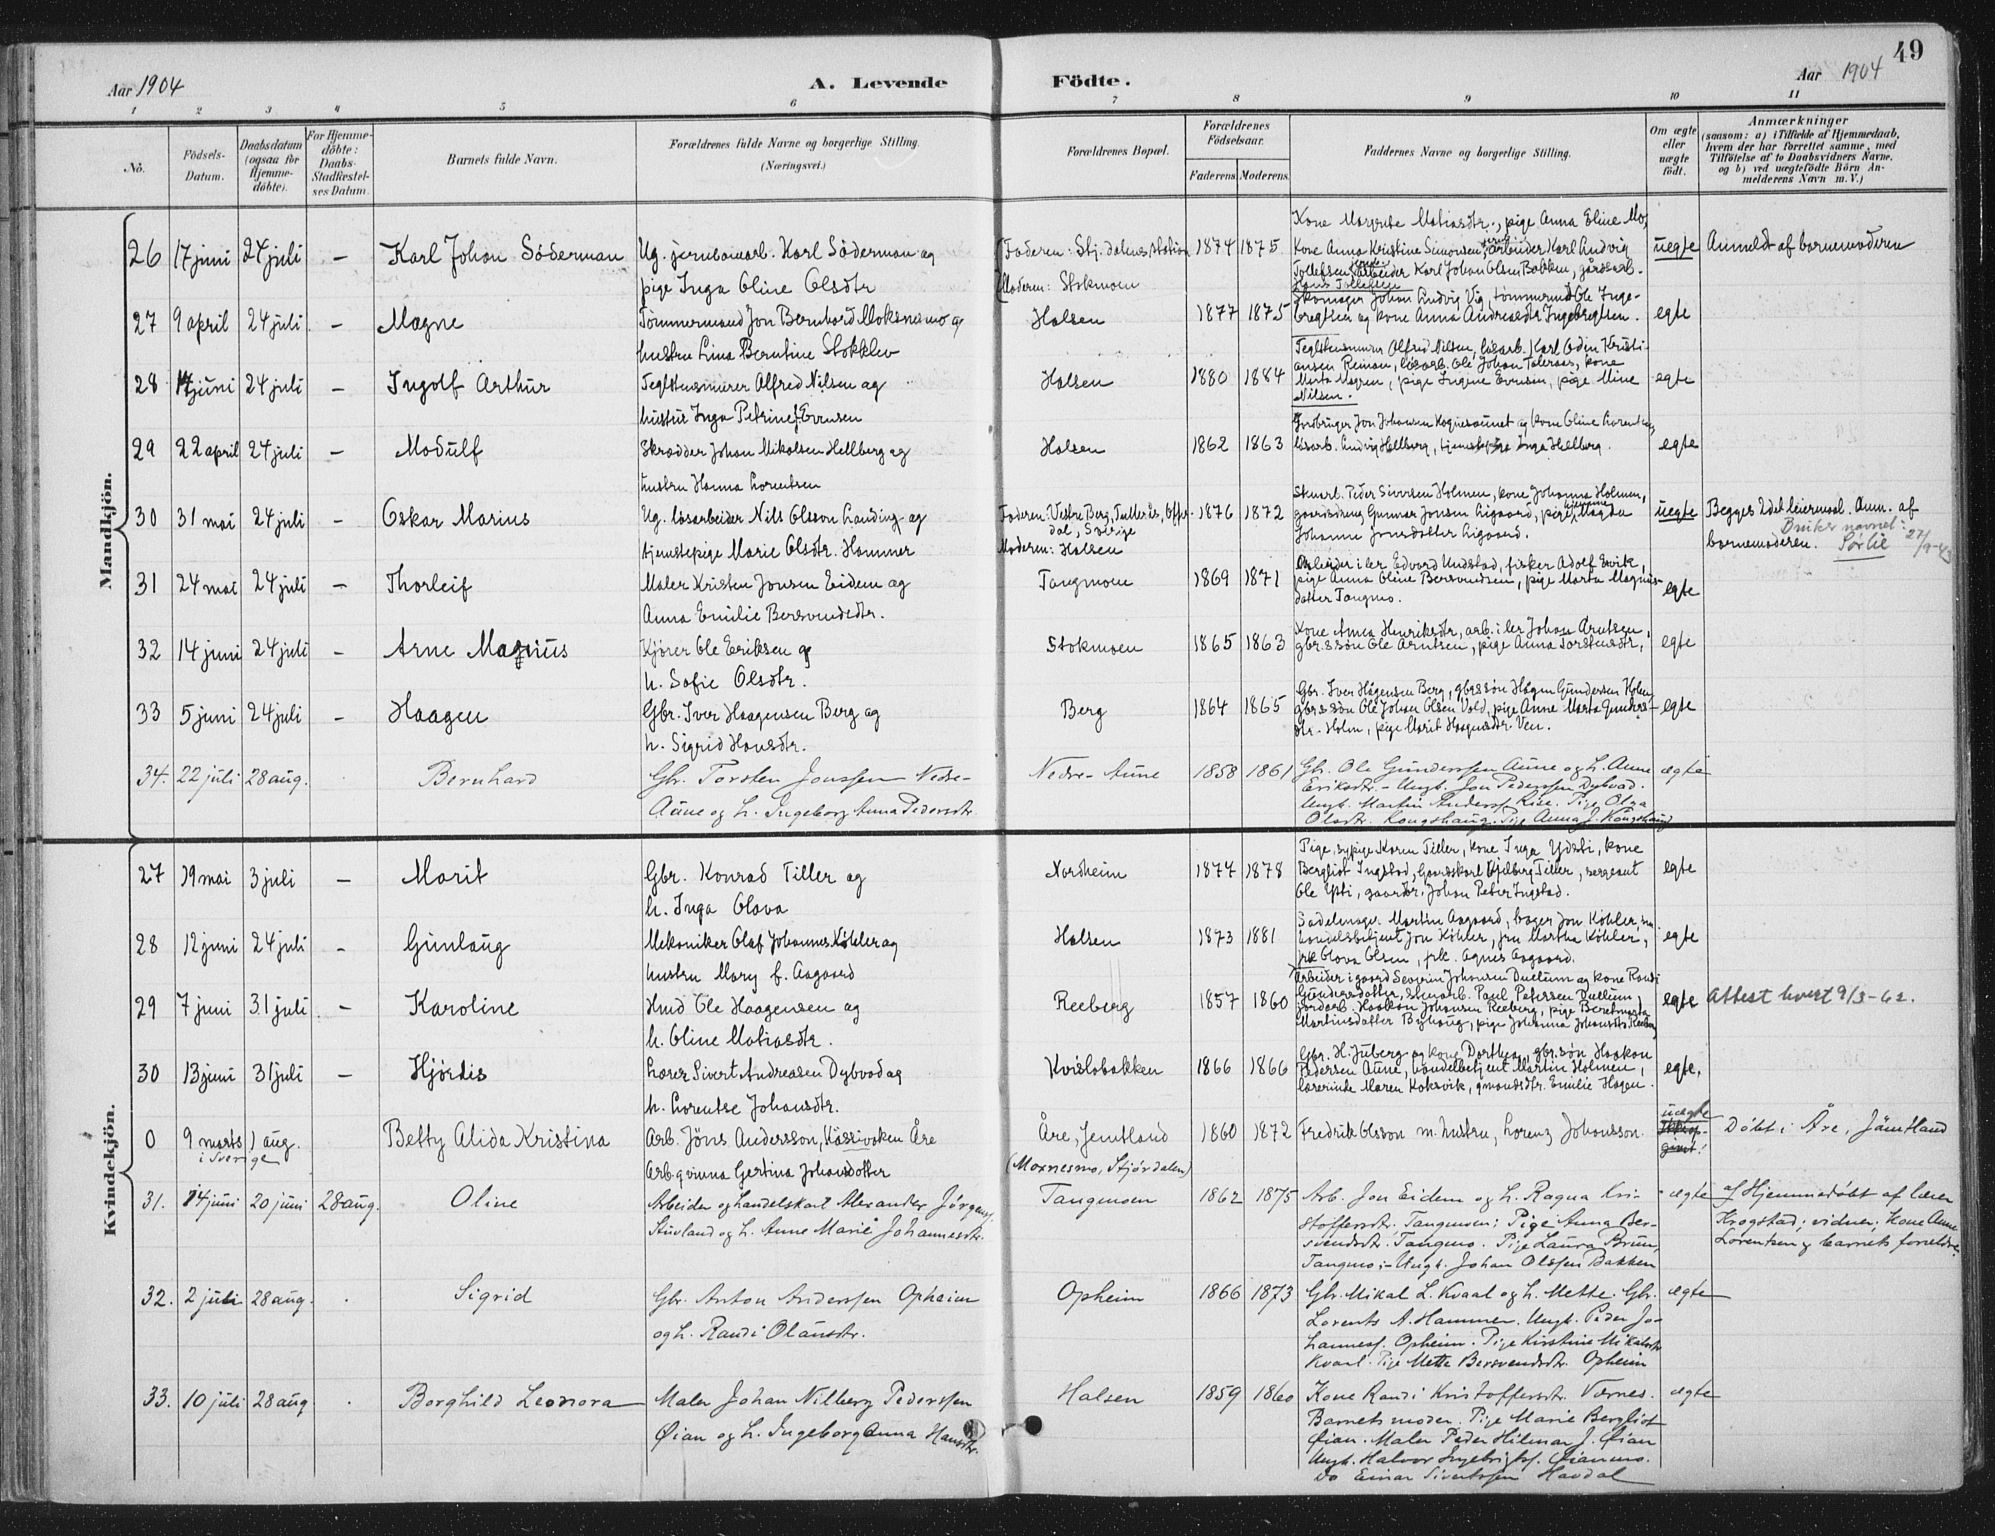 49
Aar 1904
A. Levende Födte.
Aar 1904
1 2 3 4 5 6 7 8 9 10 11
No.
Födsels-Datum.
Daabsdatum (ogsaa for Hjemme-döbte).
For Hjemme-döbte: Daabs-Stadfæstel-ses Datum.
Barnets fulde Navn.
Forældrenes fulde Navne og borgerlige Stilling. (Næringsvei.)
Forældrenes Bopæl.
Forældrenes Födselsaar.
Faderens Moderens
Faddernes Navne og borgerlige Stilling.
Om ægte eller uægte födt.
Anmærkninger
(saasom: a) i Tilfælde af Hjemmedaab,
hvem der har forrettet samme, med
Tilföielse af to Daabsvidners Navne,
og b) ved uægtefödte Börn An-
melderens Navn m. V.)
Mandkjön.
26 17 juni 24 juli – Karl Johan Söderman
Ug. jernbanearb. Karl Söderman og
pige Inga Oline Olsdtr
Faderen: Stj.dalens station
Moderen: Stokmoen
1874 1875
Kone Margrete Matiasdtr., pige Anna Eline Mo,
Kone Anna Kristine Simonsen, arbeider Karl Ludvig
Tollefsen, arbeider Karl Johan Olsen Bakken, gårdarb.
Hans Tollefsen
uegte Anmeldt af barnemoderen
27 9 april 24 juli – Magne
Tømmermand Jon Bernhard Moksnesmo og
hustru Lina Berntine Stokklev
Halsen 1877 1875
Skomager Johan Ludvig Vig, tømmermd Ole Inge-
bregtsen og kone Anna Andreasdtr Ingebregtsen.
egte
28 17 juni 24 juli – Ingolf Arthur
Teglstensmurer Alfred Nilsen og
hustru Inga Petrine f. Evensen
Halsen 1880 1884
Teglstensmurer Alfred Nilsen, løsarb. Karl Odin Kristi-
ansen Reman, løsarb. Ole Johan Toleraas, kone
Marta Magren, pige Ingine Evensen, pige Mine
Nilsen.
egte
29 22 april 24 juli – Modulf
Skrædder Johan Mikalsen Hellberg og
hustru Hanna Lorentsen
Halsen 1862 1863
Gårdbruger Jon Johansen og kone Oline Lorentsen,
løsarb. Ludvig Hellberg, tjenestepige Inga Hellberg.
egte
30 31 mai 24 juli – Oskar Marius
Ug. løsarbeider Nils Olsson Landing og
tjenstepige Marie Olsdtr. Hammer
Faderen: Vestre Berg, Tullerås, Offer-
dal, Sverige
Moderen: Halsen
1876 1872
Skuarb. Peder Sivertsen Holmen, kone Johanna Holmen,
gaardsdreng Gunnar Jonsen Ligaard, pige Magda
Johanna Jonsdatter Ligaard.
uegte Begges 2det leiermaal. Anm. af
barnemoderen. Bruker navnet: Sørlie 27/9-43
31 24 mai 24 juli – Thorleif
Maler Kristen Jonsen Eidem og
Anna Emilie Bersvendsdtr.
Tangmoen 1869 1871
Arbeider i ler Edvard Undstad, fisker Adolf Ervik,
pige Anna Oline Bersvendsen, pige Marta Magnus-
datter Tangmo.
egte
32 14 juni 24 juli – Arne Magnus
Kjører Ole Eriksen og
h. Sofie Olsdtr.
Stokmoen 1865 1863
Kone Anna Henriksdtr, arb. i ler Johan Arntsen,
gbr.s søn Ole Arntsen, pige Anna Torstensdtr,
egte
33 5 juni 24 juli – Haagen
Gbr. Iver Haagensen Berg og
h. Sigrid Hansdtr.
Berg 1864 1865
Gbr. Iver Hågensen Berg, gbrs søn Hågen Gundersen Holm
gbr.s søn Ole Johan Olsen Vold, pige Anne Marta Gunders-
dtr. Holm, pige Marit Haagensdtr Ven.
egte
34. 22 juli 28 aug. Bernhard
Gbr. Torsten Jonssen Nedre-
Aune og h. Ingeborg Anna Pedersdtr.
Nedre-Aune 1858 1861
Gbr. Ole Gunderssen Aune og h. Anne
Eriksdtr. – Ungk. Jon Pederssen Dybvad.
Ungk. Martin Anderss. Kise. Pige Olga
Olsdtr. Kongshaug. Pige Anna J. Kongshaug
ægte
Kvindekjön.
27 19 mai 3 juli – Marit
Gbr. Konrad Tiller og
h. Inga Olava
Nordheim 1874 1878
Pige, sypige Karen Tiller, kone Inga Ydsti, kone
Bergliot Ingstad, Gaardskarl Kjelberg Tiller, sergeant
Ole Ysti, gaardbr. Johan Peter Ingstad.
egte
28 12 juni 24 juli – Gunlaug
Mekaniker Olaf Johannes Köhler og
hustru Mary f. Aagaard
Halsen 1873 1881
Sadelmager Martin Aagaard, bager Jon Köhler,
handelsbetjent Jon Köhler, fru Martha Köhler,
frk Olava Olsen, frk. Agnes Aagaard.
egte
29 7 juni 31 juli – Karoline
Hmd Ole Haagensen og
h. Oline Matiasdtr.
Reeberg 1857 1860
Arbeider i gaard Severin Johansen Duellum og kone Randi
Gundersdatter, stenarb. Paul Petersen Duellum,
jordarb. Haakon Johansen Reeberg, pige Beretmarta
Martinsdatter Byhaug, pige Johanna Johansdtr. Reeberg
egte Attest levert 9/3-62.
30 13 juni 31 juli – Hjørdis
Lærer Sivert Andreasen Dybvad og
h. Lorentse Johansdtr.
Kvislabakken 1866 1866
Gbr. H. Juberg og kone Dorthea, gbr.søn Haakon
Pedersen Aune, handelbetjent Martin Holmen,
lærerinde Maren Koksvik, gmandsdtr. Emilie Hagen.
egte.
0 9 marts 1 aug.
i Sverige
Betty Alida Kristina
Arb. Jöns Andersson, Hässivaken Åre
Arb.qvinna Gertina Johansdotter
Åre, Jemtland
(Moxnesmo, Stjørdalen)
1860 1872
Fredrik Olsson m. hustru, Lorenz Johansson.
uægte
Døbt i Åre, Jämtland
31. 14 juni 20 juni 28 aug. Oline
Arbeider og handelskarl Alexander Jørgenss.
Stuvland og h. Anne Marie Johannesdtr.
Tangmoen 1862 1875
Arb. Jon Eidem og h. Ragna Kri-
stoffersdtr. Tangmoen; Pige Anna Ber-
svendsdtr. Tangmo. Pige Laura Brun,
Tangmo; – Ungk. Johan Olssen Bakken
ægte
Hjemmedøbt af lærer
Krogstad; vidner, Kone Anne
Lorentsen og barnets forældre.
32. 2 juli 28 aug. Sigrid
Gbr. Anton Anderssen Opheim
og h. Randi Olausdtr.
Opheim 1866 1873
Gbr. Mikal L. Kvaal og h. Mette. Gbr.
Lorents A. Hammer. Ungk. Peder Jo-
hanness. Opheim. Pige Kirstine Mikalsdtr
Kvaal. Pige Mette Bersvendsdtr. Opheim
ægte
33. 10 juli 28 aug Borghild Leonora
Maler Johan Nilberg Pederssen
Øian og h. Ingeborg Anna Hansdtr.
Halsen 1859 1860
Kone Randi Kristoffersdtr. Værnes.
Barnets moder. Pige Marie Bergliot
Øian. Maler Peder Hilmar J. Øian
Ungk. Halvor Ingebrigtss. Øianmo.
Do Einar Sivertssen Havdal
ægte